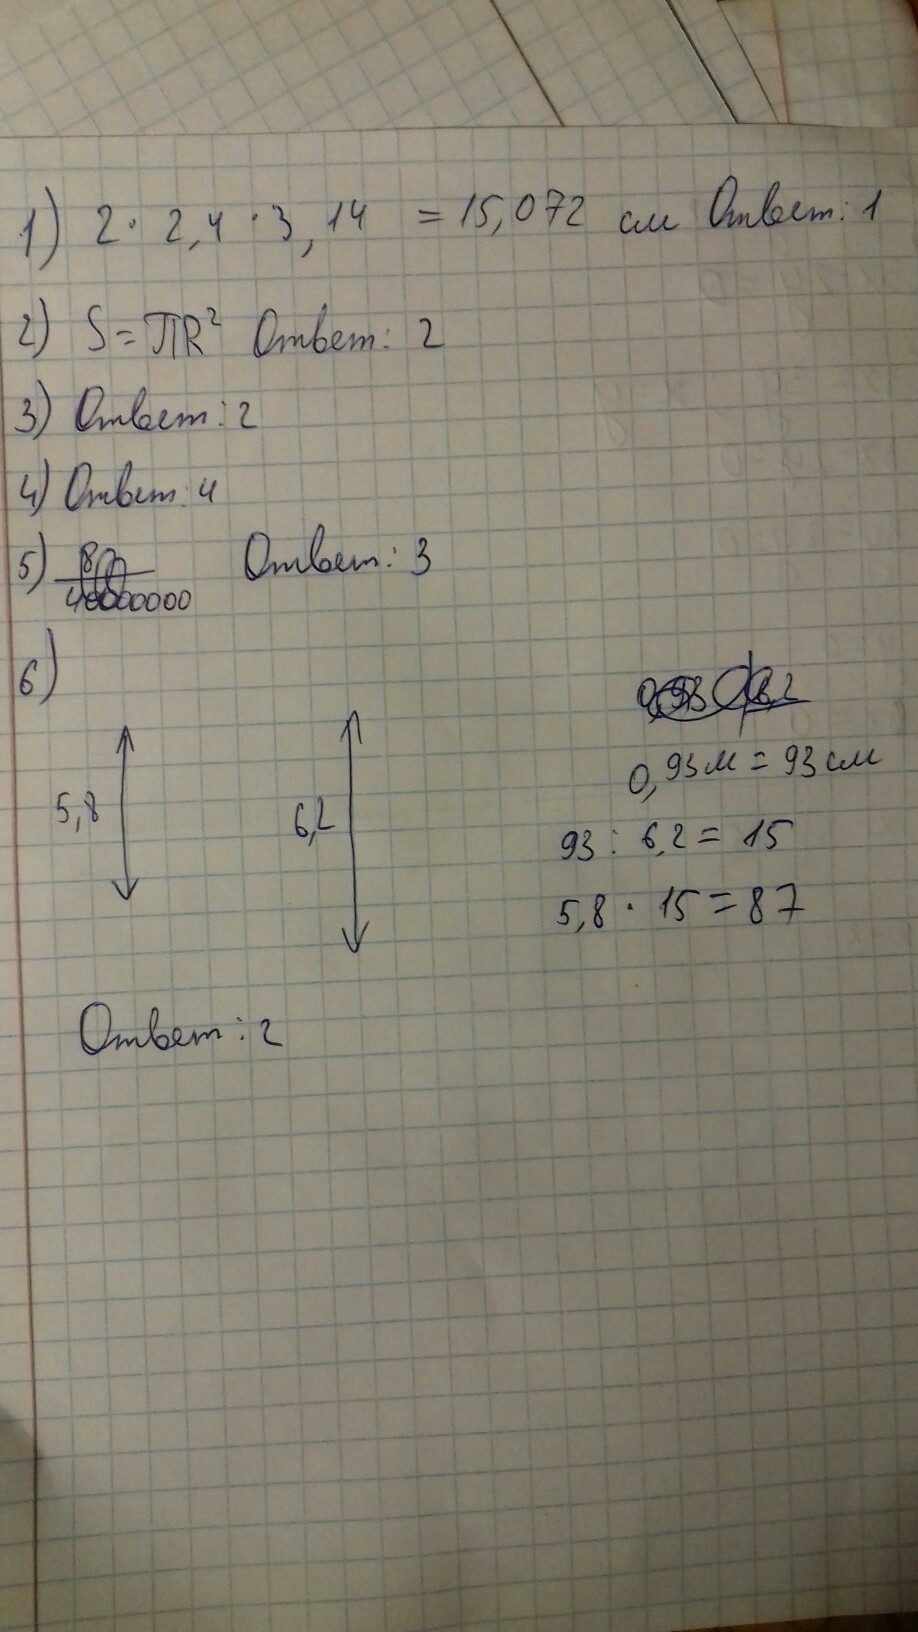 1) 2 · 2,4 · 3,14 = 15,072 см Ответ: 1
2) S = πR² Ответ: 2
3) Ответ: 2
4) Ответ: 4
5) Ответ: 3
40000000
6)
0,93м = 93 см
5,8
6,2
93 : 6,2 = 15
5,8 · 15 = 87
Ответ: 2